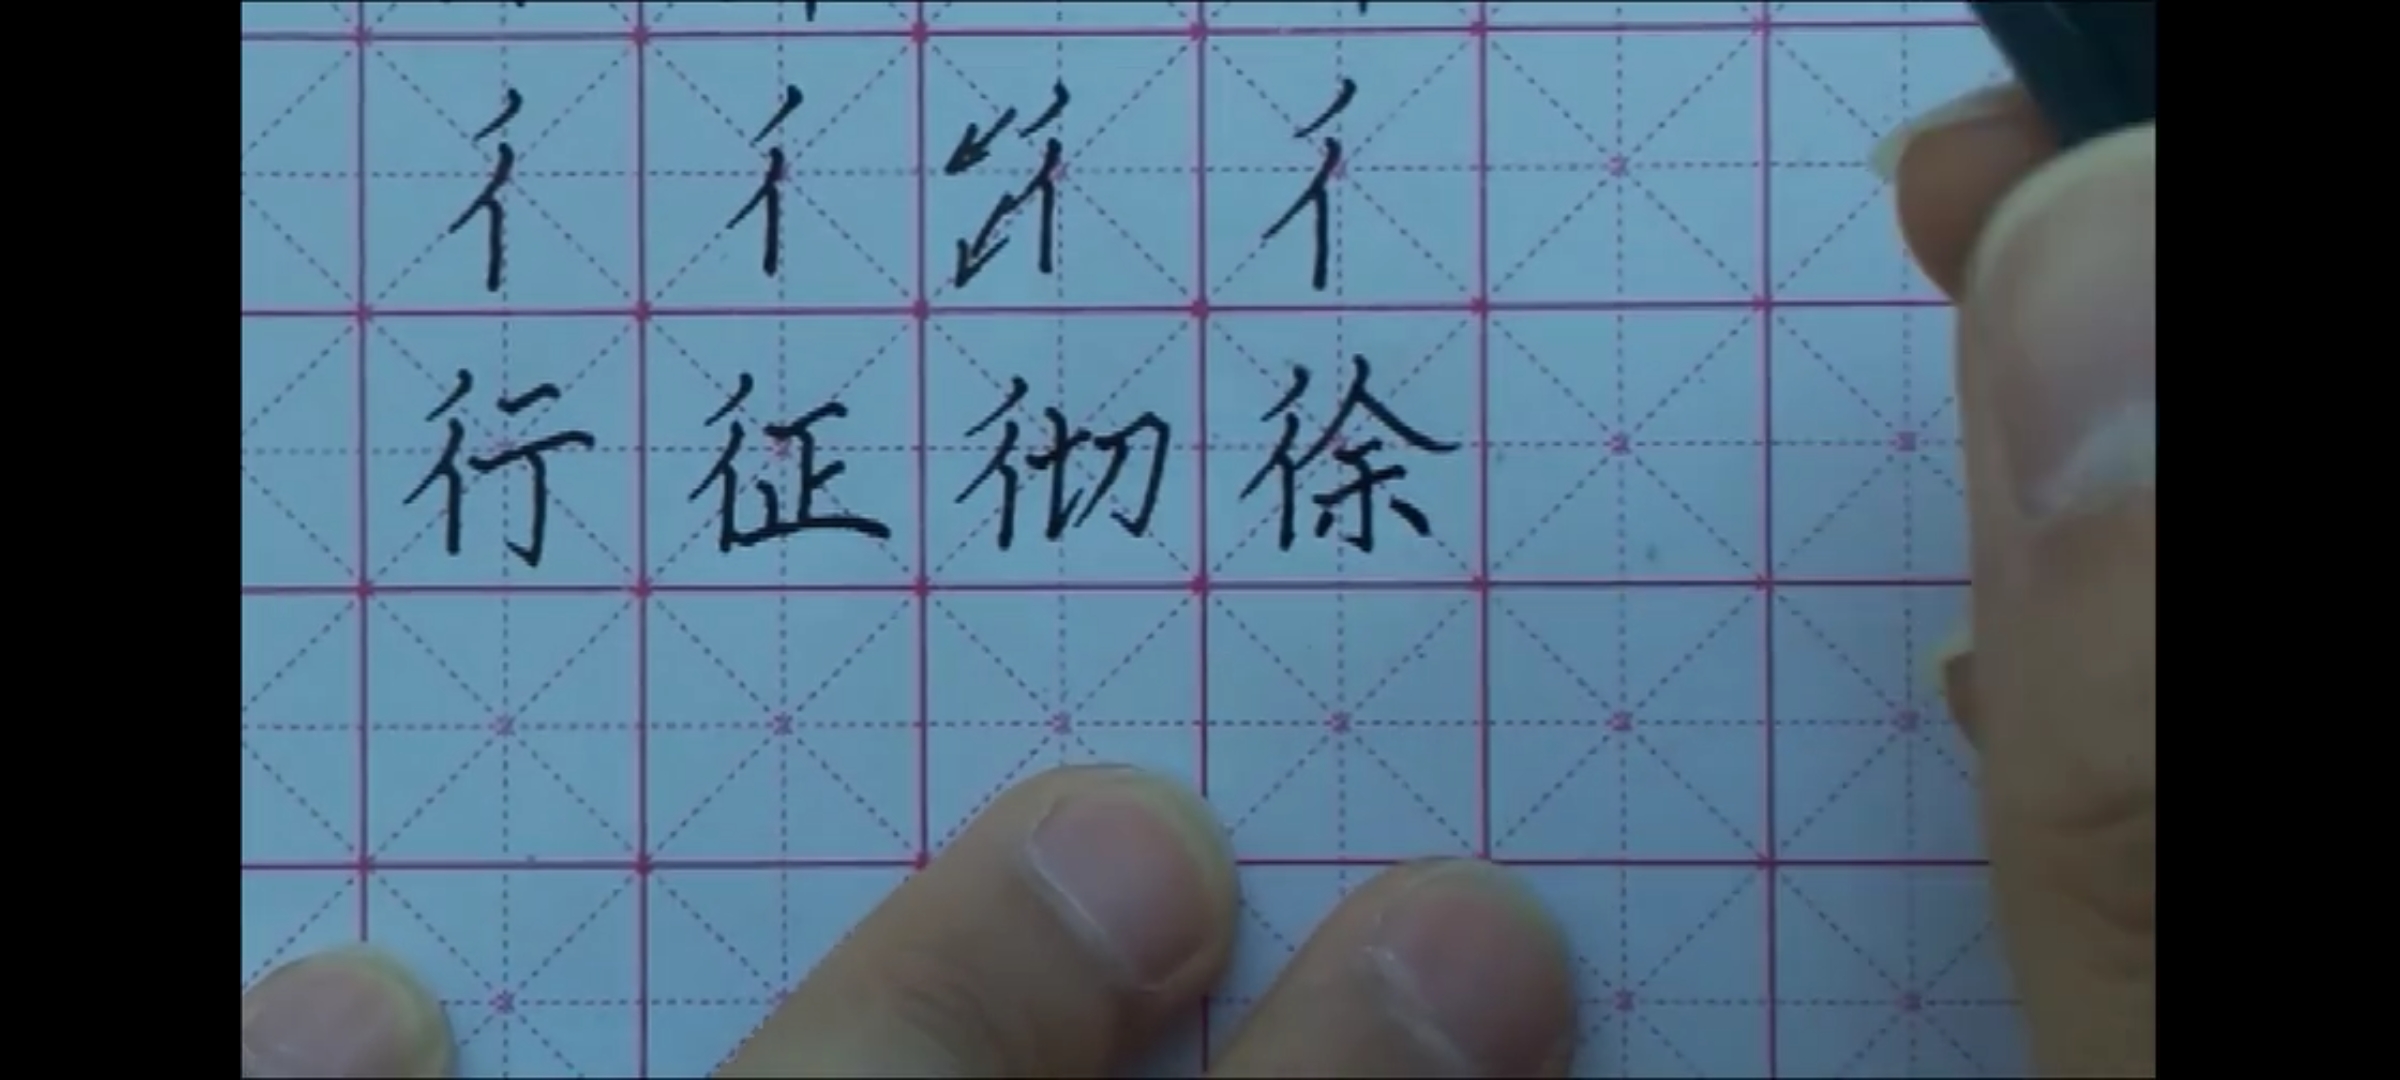 彳彳彳彳
行征彻徐